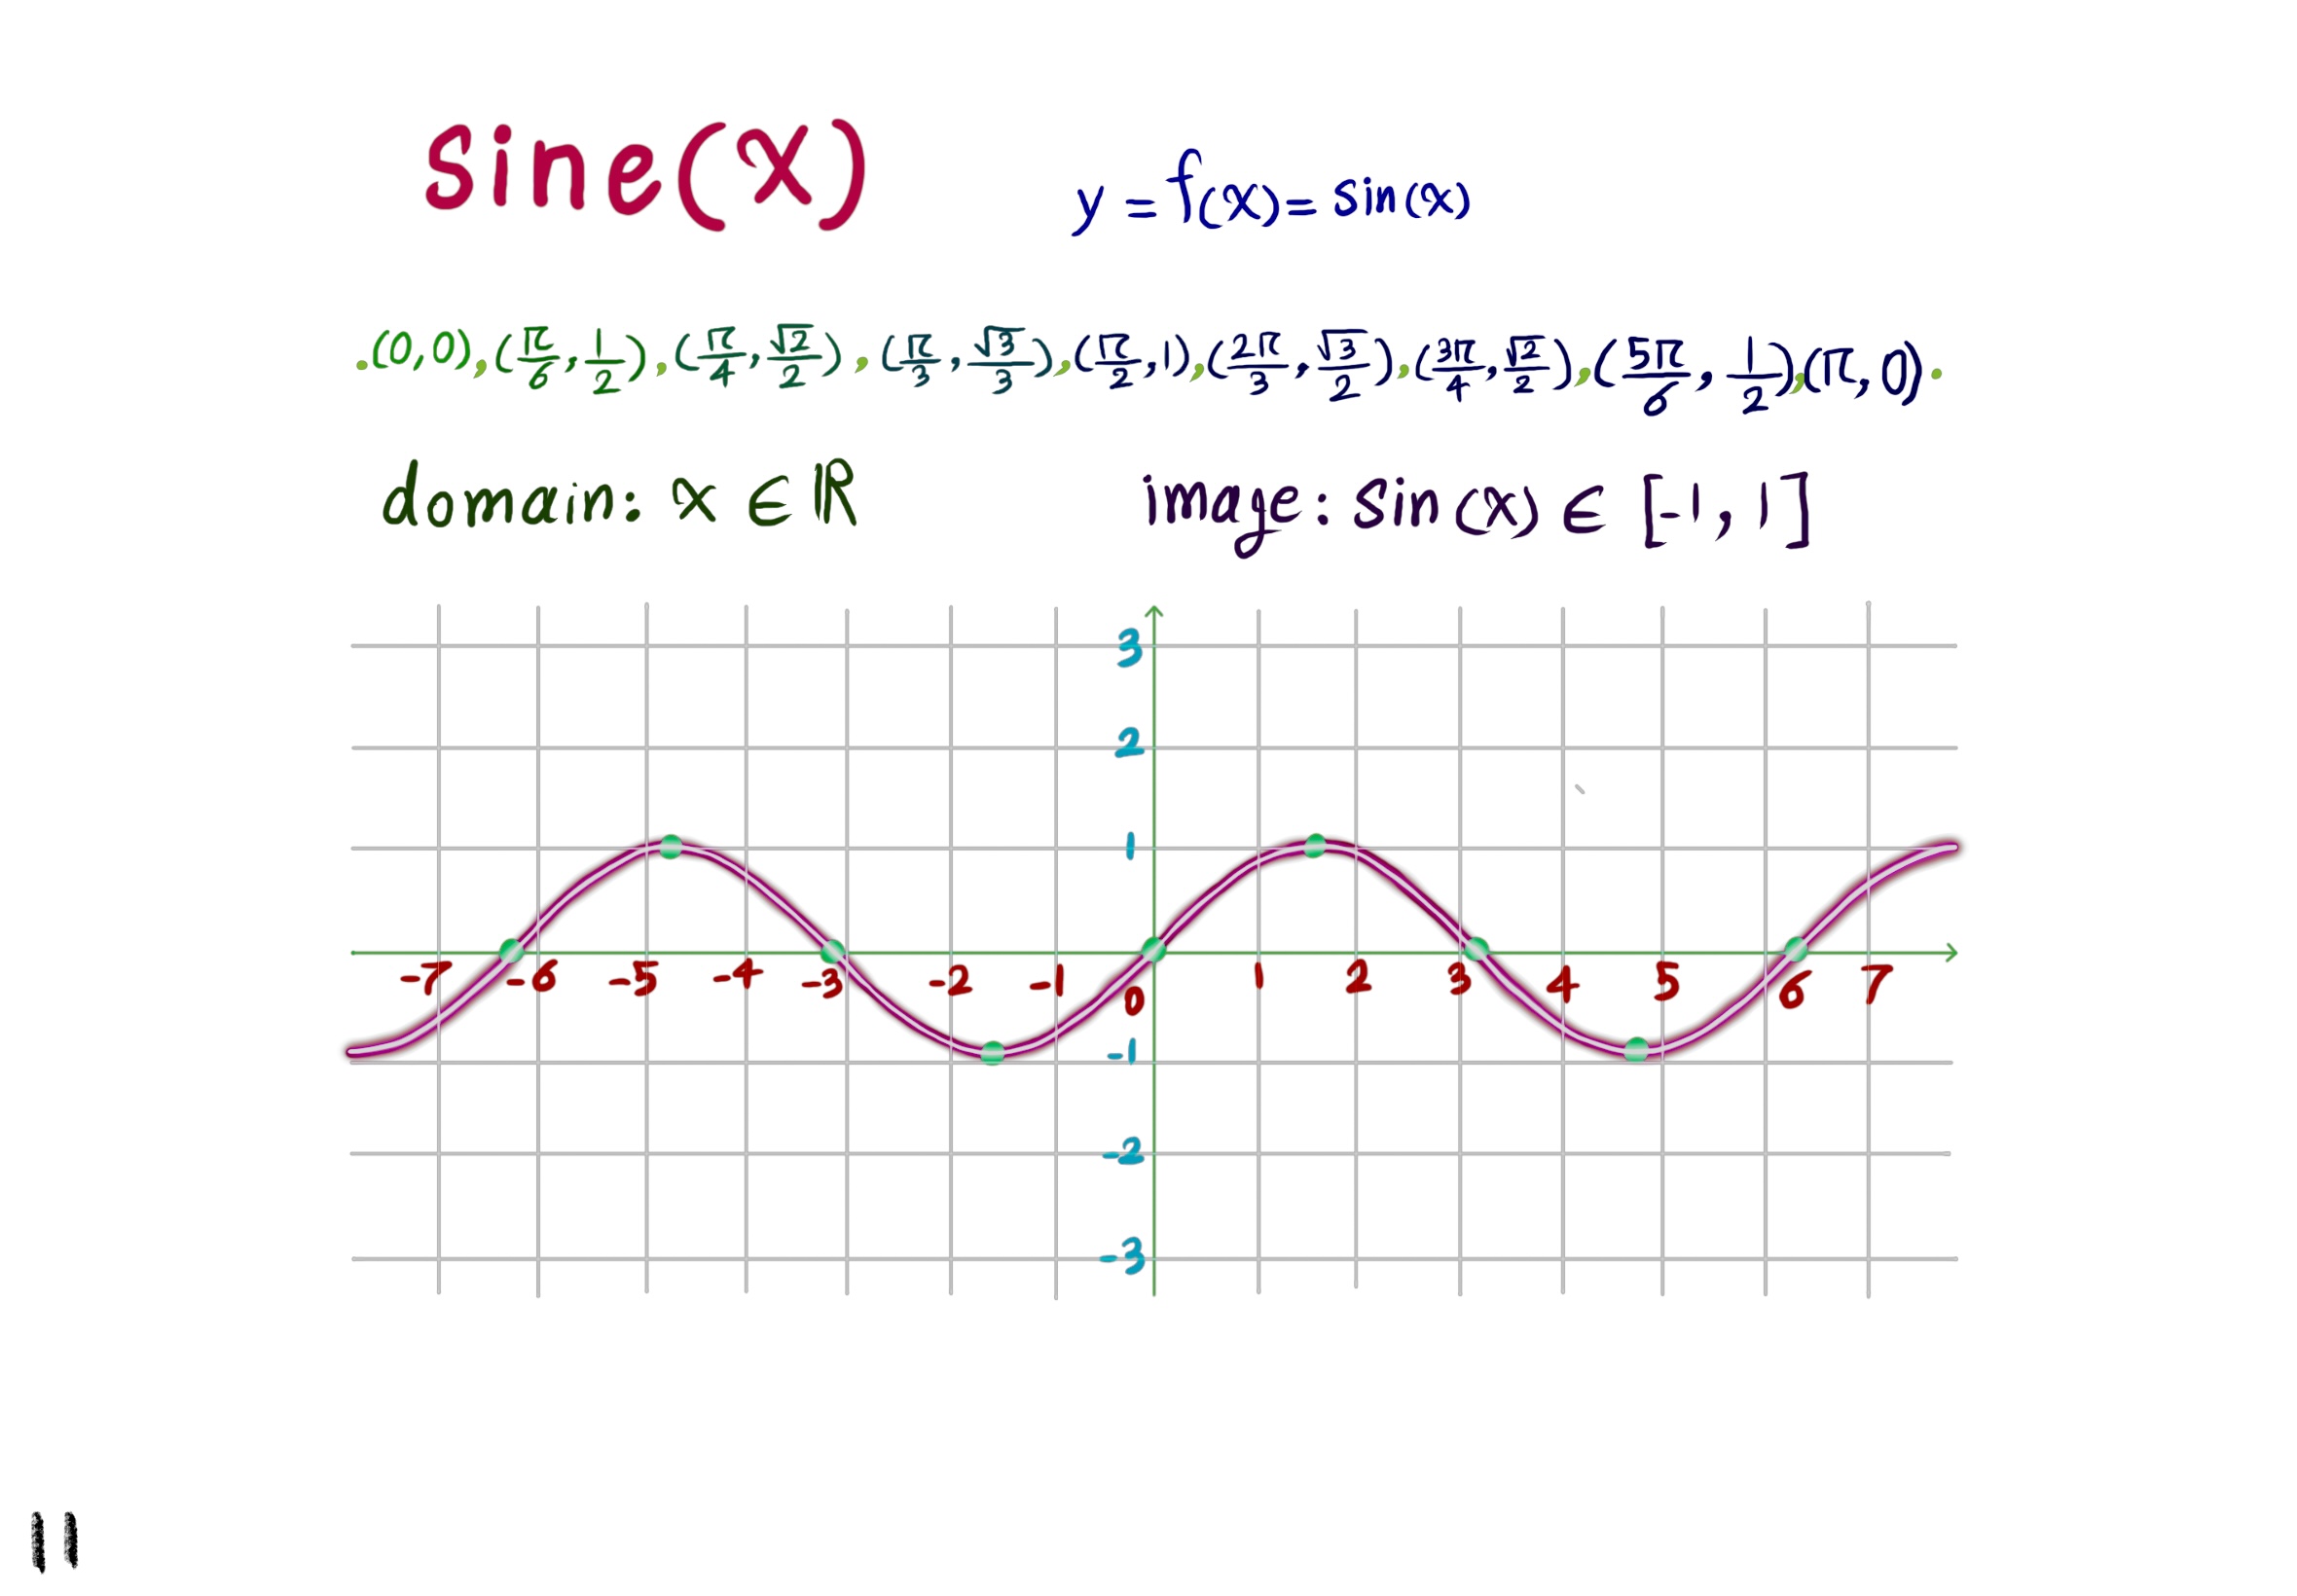 Sine(X)
y = f(x) = sin(x)
.(0,0), (π/6, 1/2), (π/4, √2/2), (π/3, √3/3), (π/2, 1), (2π/3, √3/2), (3π/4, √2/2), (5π/6, 1/2), (π, 0).
domain: x ∈ ℝ
image: sin(x) ∈ [-1, 1]
3
2
1
-7 -6 -5 -4 -3 -2 -1 0 1 2 3 4 5 6 7
-1
-2
-3
11